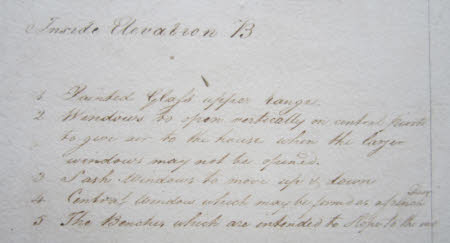 Inside Elevation B
1 Painted Glass upper range.
2 Windows to open vertically on central pivots
to give air to the house when the larger
windows may not be opened.
3 Sash Windows to move up & down
4 Central Window which may be made a french
5 The Benches which are intended to slope to the